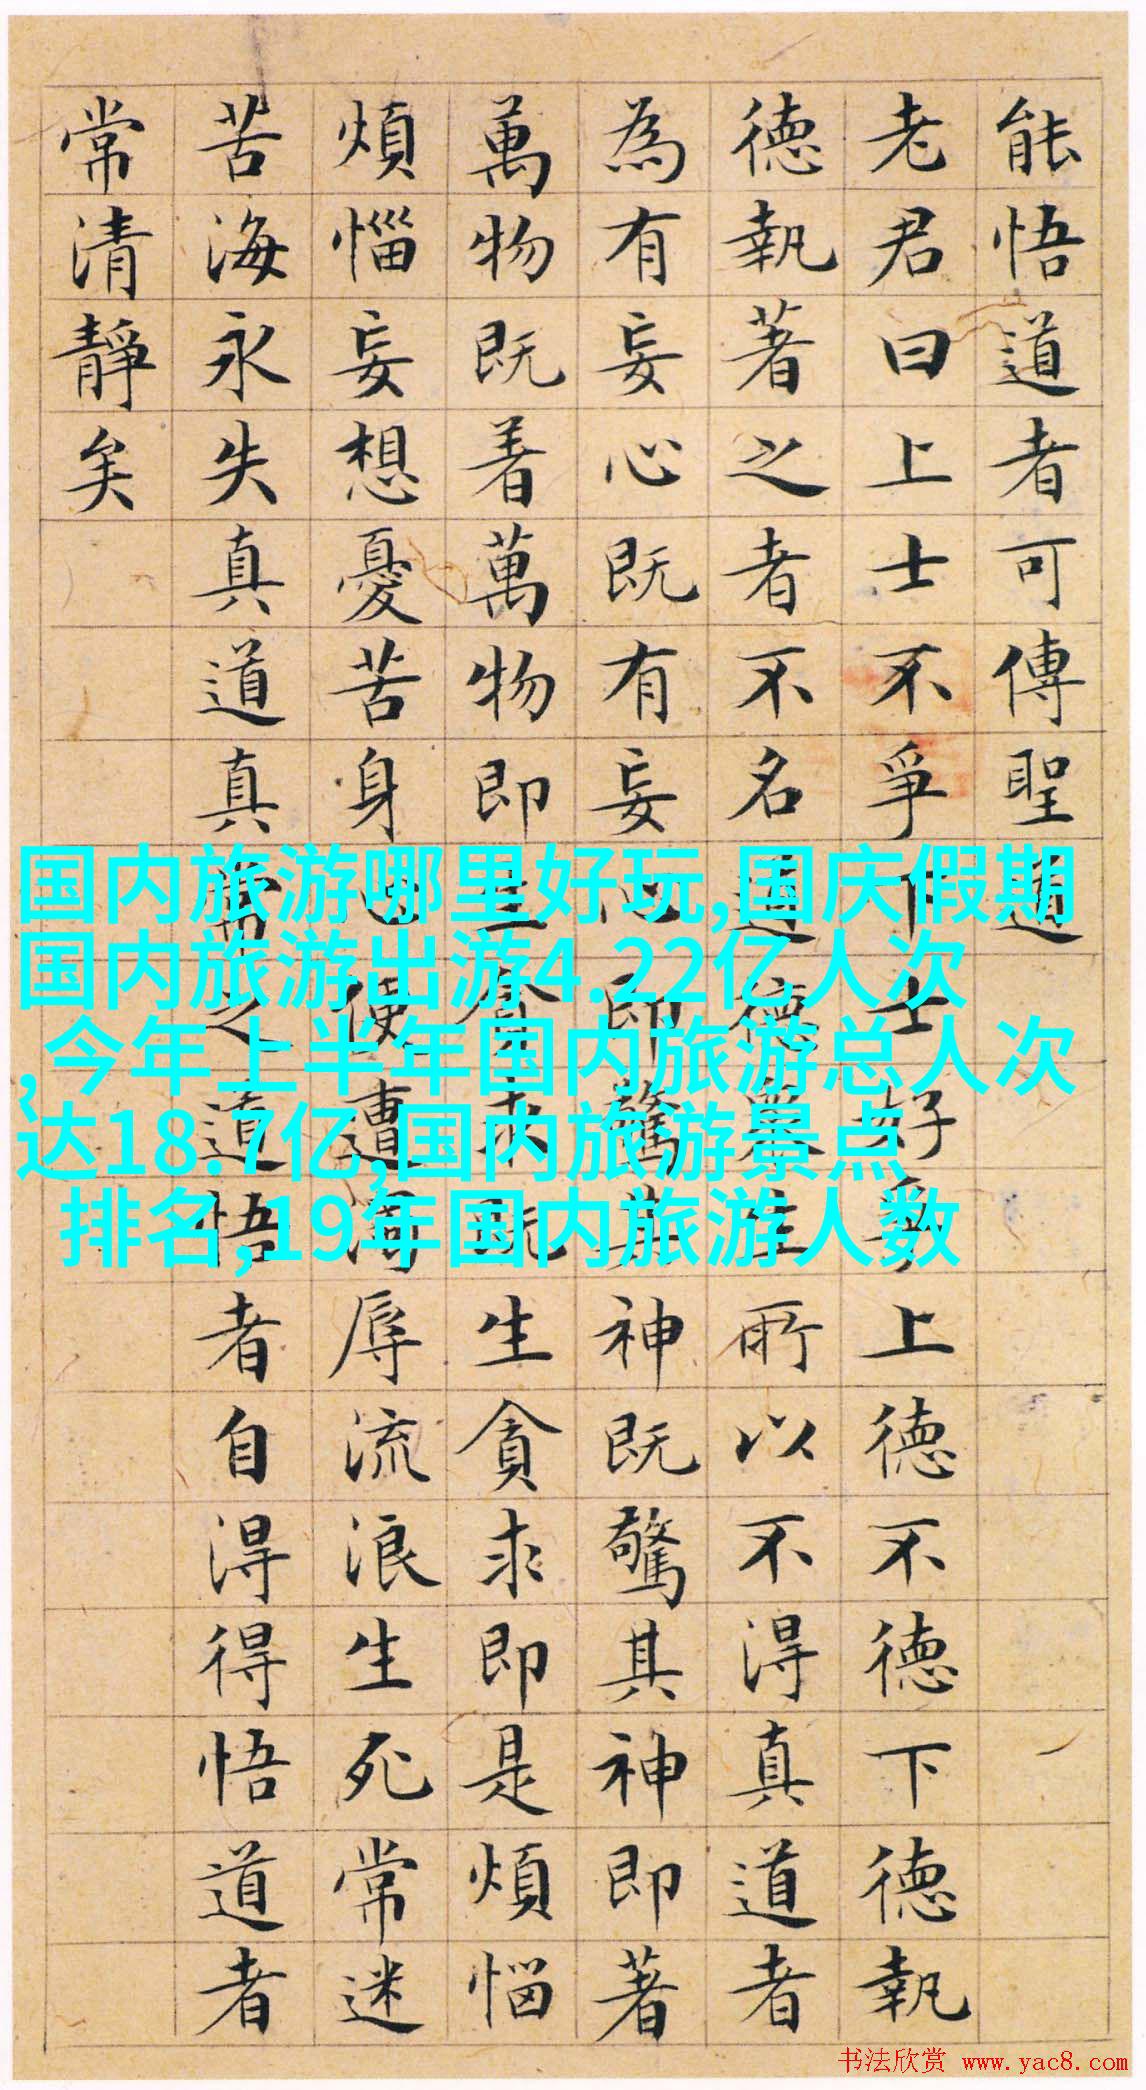 能悟道者可傳聖道
老君曰上士不爭下士好爭上德不德下德執
德執著之者不名道德眾生所以不得真道者
為有妄心既有妄心即驚其神既驚其神即著
萬物既着萬物即生貪求既生貪求即是煩惱
煩惱妄想憂苦身心便遭濁辱流浪生死常迷
苦海永失真道真常之道悟者自得得悟道者
常清靜矣
国内旅游哪里好玩,国庆假期
国内旅游出游4.22亿人次
,今年上半年国内旅游总人次
达18.7亿,国内旅游景点
排名,19年国内旅游人数
书法欣赏 www.yac8.com